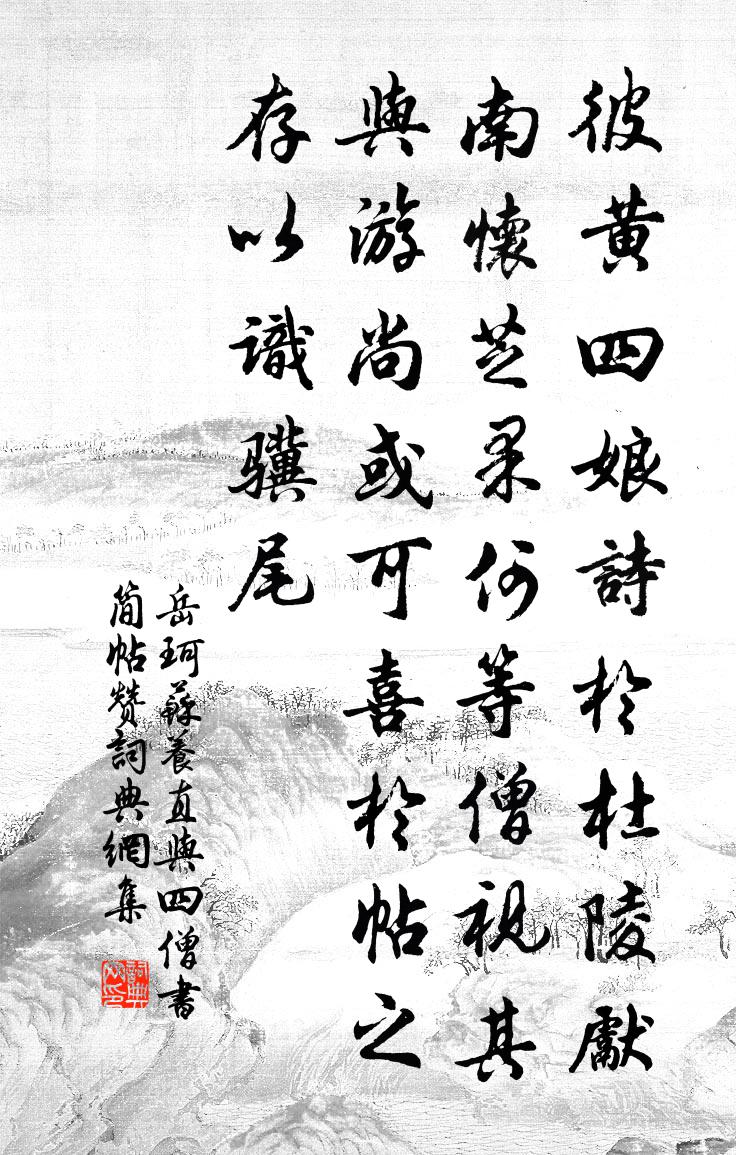 彼黄四娘詩於杜陵獻
南懷芝果何等僧視其
與游尚或可喜於帖之
存以識驥尾
岳珂蘇養直與四僧書
簡帖贊詞典網集
詞典网印